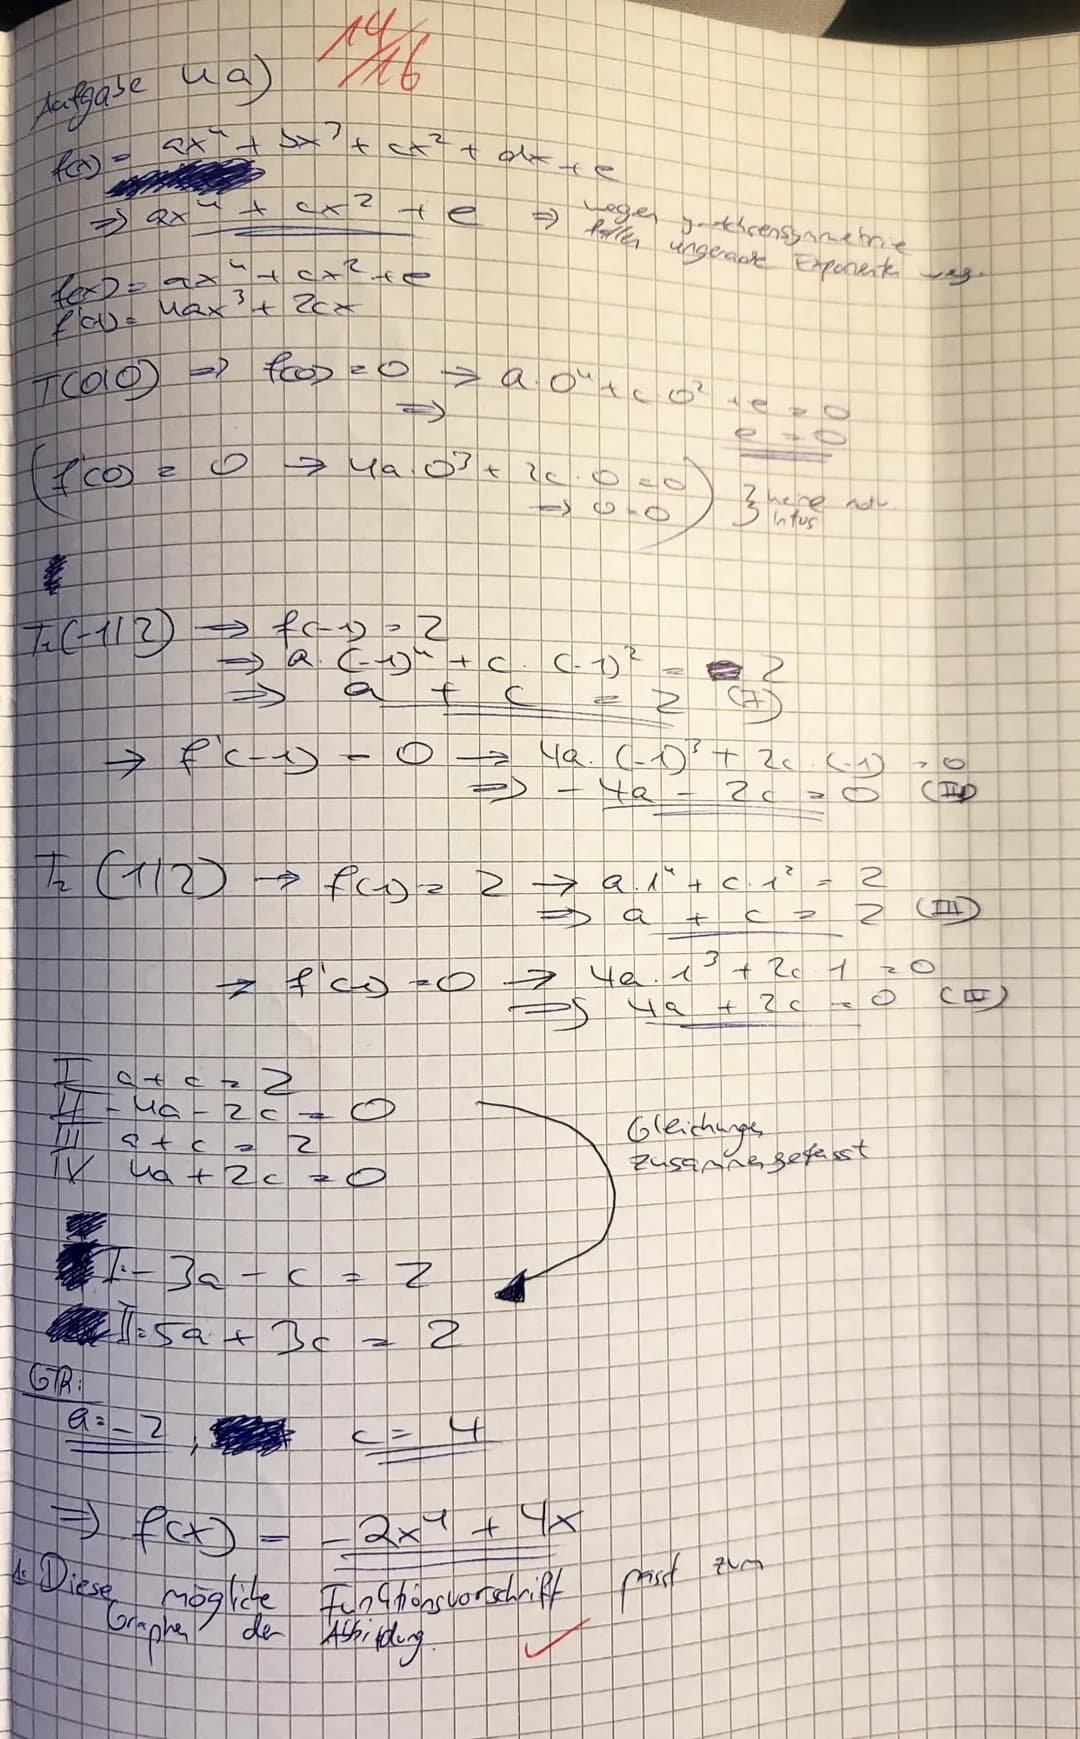 14/16
Aufgabe 4a)
f(x) = ax⁴ + bx³ + cx² + dx + e
⇒ ax⁴ + cx² + e ⇒ wegen y-Achsensymmetrie
fallen ungerade Exponenten weg.
f(x) = ax⁴ + cx² + e
f'(x) = 4ax³ + 2cx
T(0|0) ⇒ f(0) = 0 → a·0⁴ + c·0² + e = 0
⇒ e = 0
(f'(0) = 0 → 4a·0³ + 2c·0 = 0
⇒ 0=0) } keine
Infos
T₁(-1|2) → f(-1) = 2
⇒ a·(-1)⁴ + c·(-1)² = 2
⇒ a + c = 2 (I)
→ f'(-1) = 0 → 4a·(-1)³ + 2c·(-1) = 0
⇒ -4a - 2c = 0 (II)
T₂(1|2) → f(1) = 2 → a·1⁴ + c·1² = 2
⇒ a + c = 2 (III)
→ f'(1) = 0 → 4a·1³ + 2c·1 = 0
⇒ 4a + 2c = 0
I a + c = 2
II -4a - 2c = 0
III a + c = 2
IV 4a + 2c = 0
Gleichungen
zusammengefasst
I: -3a - c = 2
II: 5a + 3c = 2
GTR:
a = -2, c = 4
⇒ f(x) = -2x⁴ + 4x
A: Diese mögliche Funktionsvorschrift passt zum
Graphen der Abbildung. ✓